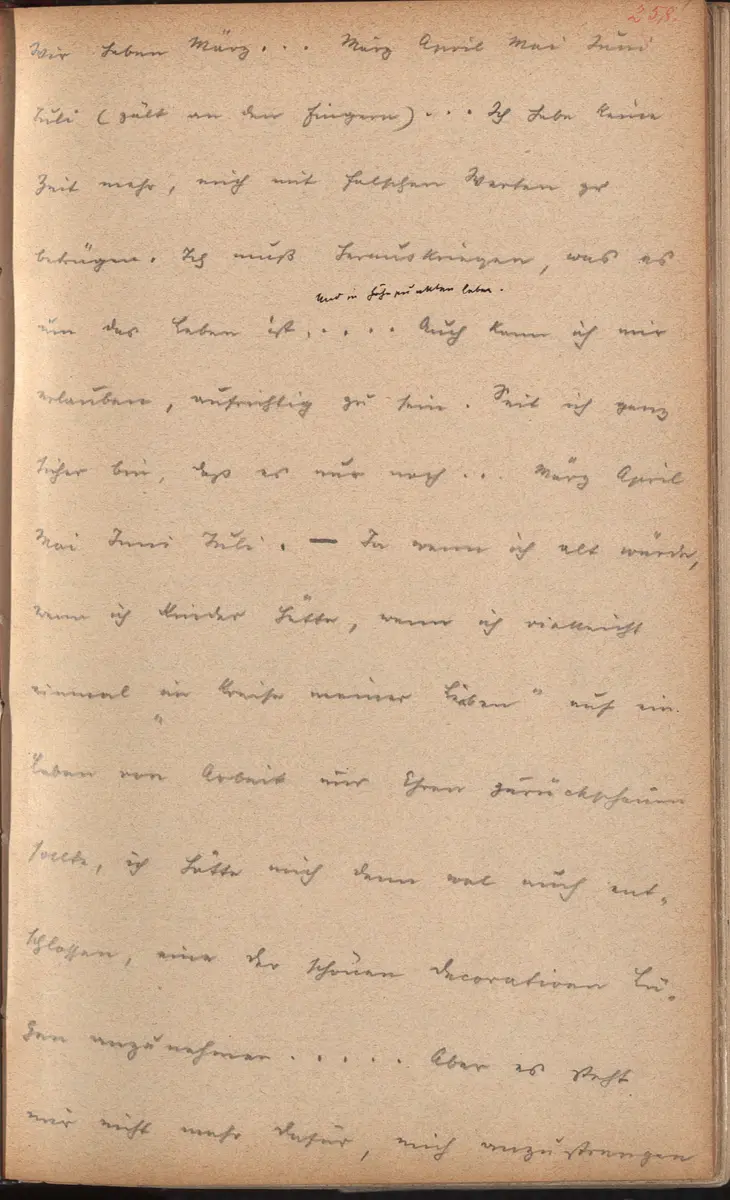 258.
Wir haben März... März April Mai Juni
Juli (zält an den Fingern)... Ich habe keine
Zeit mehr, mich mit falschen Werten zu
betrügen. Ich muß herauskriegen, was es
und in Höhepunkten leben.
um das Leben ist..... Auch kann ich mir
erlauben, aufrichtig zu sein. Seit ich ganz
sicher bin, daß es nur noch... März April
Mai Juni Juli. — Ja wenn ich alt würde,
wenn ich Kinder hätte, wenn ich vielleicht
einmal „im Kreise meiner Lieben" auf ein
Leben von Arbeit und Ehren zurückschauen
sollte, ich hätte mich dann wol auch ent-
schlossen, eine der schönen decorativen Lü-
gen anzunehmen..... Aber es steht
mir nicht mehr dafür, mich anzustrengen